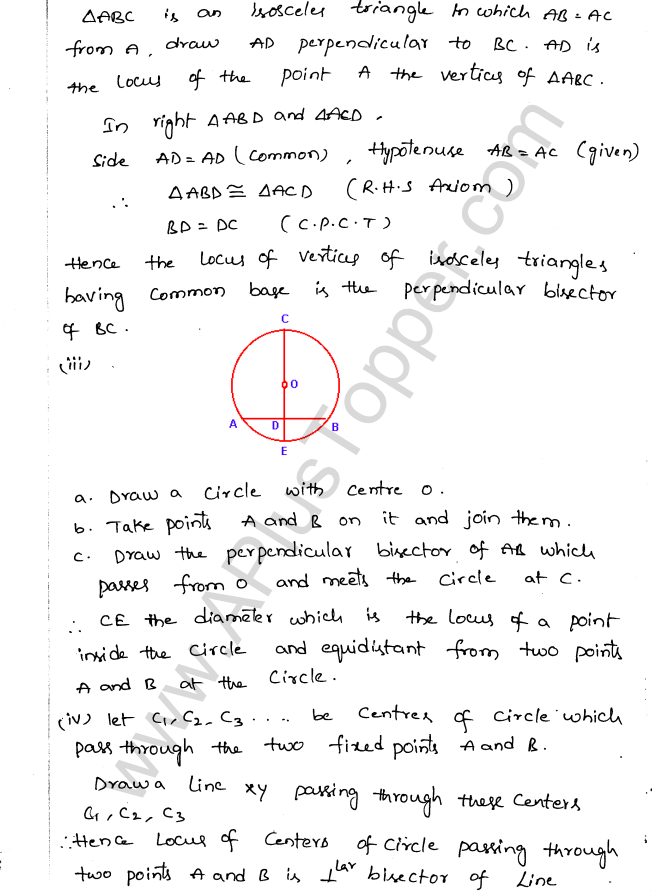 △ABC is an isosceles triangle in which AB = AC
from A, draw AD perpendicular to BC. AD is
the locus of the point A the vertices of △ABC.
In right △ABD and △ACD,
Side AD = AD (common), Hypotenuse AB = AC (given)
∴ △ABD ≅ △ACD (R.H.S Axiom)
BD = DC (C.P.C.T)
Hence the locus of vertices of isosceles triangles
having common base is the perpendicular bisector
of BC.
(iii)
C
O
A D B
E
a. Draw a circle with centre O.
b. Take points A and B on it and join them.
c. Draw the perpendicular bisector of AB which
passes from O and meets the circle at C.
∴ CE the diameter which is the locus of a point
inside the circle and equidistant from two points
A and B at the circle.
(iv) let C1, C2, C3 .... be centres of circle which
pass through the two fixed points A and B.
Draw a line xy passing through these centers
C1, C2, C3
∴ Hence Locus of centers of circle passing through
two points A and B is ⊥lar bisector of Line
www.APlusTopper.com